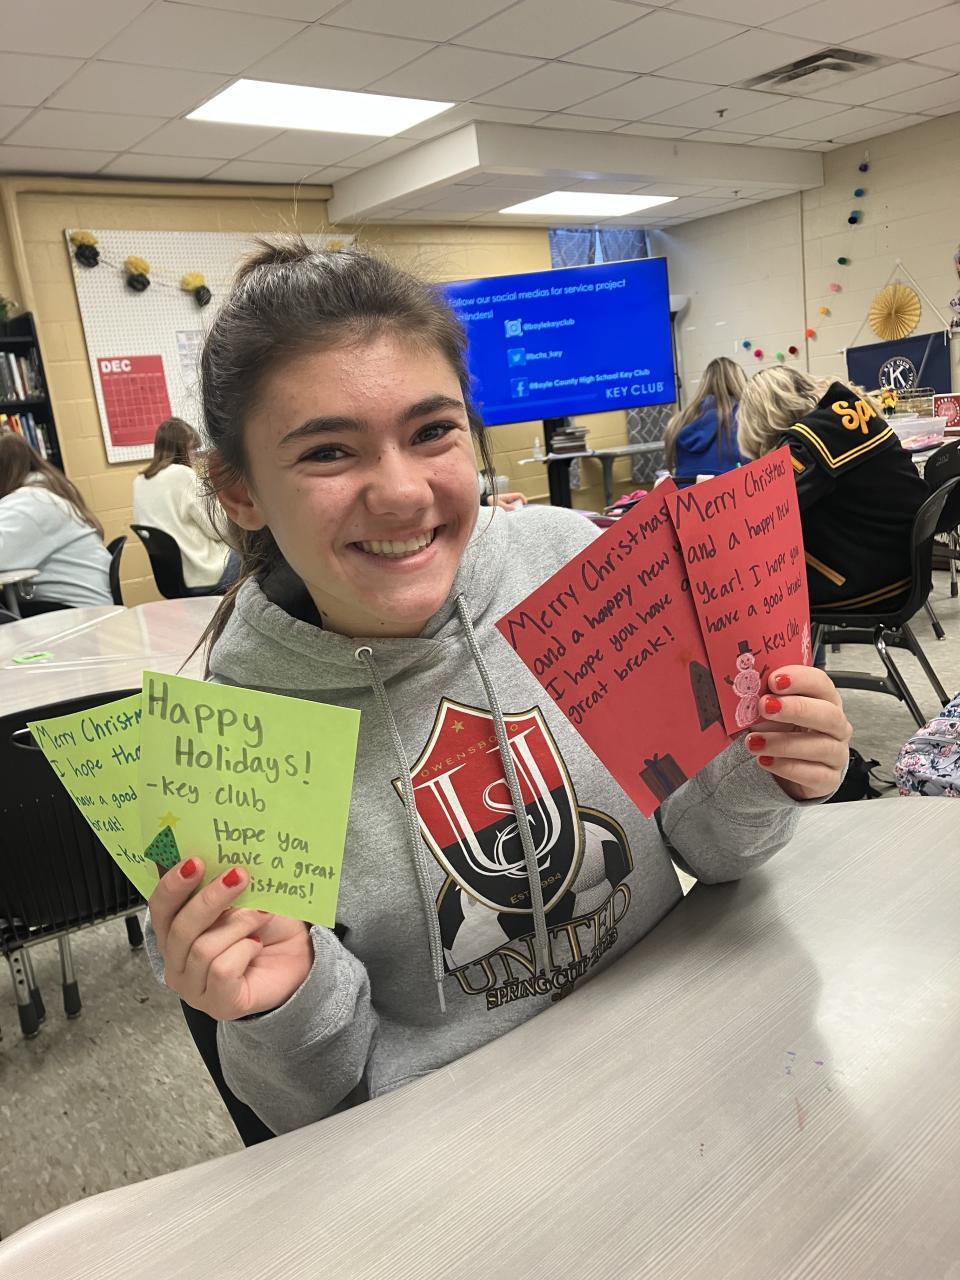 follow our social medias for service project
@boylekeyclub
@bchs_key
@Boyle County High School Key Club
KEY CLUB
DEC
Merry Christmas
and a happy new
I hope you have a
great break!
Merry Christmas
and a happy new
Year! I hope you
have a good break!
-Key Club
Merry
I hope
have a good
break!
Happy
Holidays!
-Key club
Hope you
have a great
OWENSBORO
U S C
EST. 1994
UNITED
SPRING CUP 2023
K